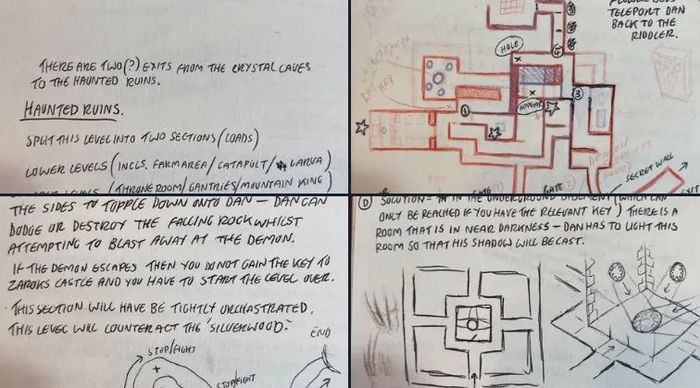 THERE ARE TWO(?) EXITS FROM THE CRYSTAL CAVES
TO THE HAUNTED RUINS.
HAUNTED RUINS.
SPLIT THIS LEVEL INTO TWO SECTIONS (LOADS)
LOWER LEVELS (INCLS. FARMAREA / CATAPULT / LARVA)
(THRONE ROOM / GANTRIES / MOUNTAIN KING)
TELEPORT DAN
BACK TO THE
RIDDLER.
HOLE
4
3
1
APPEAR
SECRET WALL
EXIT
GATE
THE SIDES TO TOPPLE DOWN ONTO DAN — DAN CAN
DODGE OR DESTROY THE FALLING ROCK WHILST
ATTEMPTING TO BLAST AWAY AT THE DEMON.
IF THE DEMON ESCAPES THEN YOU DO NOT GAIN THE KEY TO
ZAROKS CASTLE AND YOU HAVE TO START THE LEVEL OVER.
THIS SECTION WILL HAVE BE TIGHTLY ORCHASTRATED.
THIS LEVEL WILL COUNTERACT THE 'SILVERWOOD'.
END
STOP/FIGHT
STOP/FIGHT
D SOLUTION = IN THE UNDERGROUND (WHICH CAN
ONLY BE REACHED IF YOU HAVE THE RELEVANT KEY) THERE IS A
ROOM THAT IS IN NEAR DARKNESS — DAN HAS TO LIGHT THIS
ROOM SO THAT HIS SHADOW WILL BE CAST.